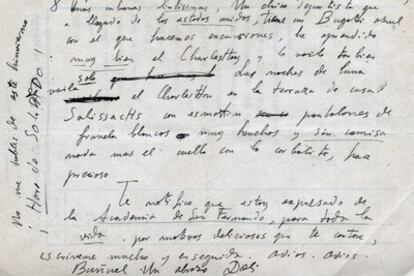 8 unas cubanas bellísimas, Un chico deportista que
a llegado de los estados unidos, tiene un Bugatti azul
con el que hacemos excursiones, he aprendido
muy bien el Charlestton, y lo vaile tan bien
solo
vaile el Charlestton en la terraza de casa
Salissachs con esmotin pantalones de
franela blancos muy hanchos y sin camisa
nada mas el cuello con la corbatita, hace
precioso
Te notifico que estoy expulsado de
la Academia de San Fernando, para toda la
vida. por motivos deliciosos que te contare,
escriveme mucho y enseguida. adios. adios.
Buñuel Un abrazo Dalí
No me hables de este
¡Hora do SOLPADO!